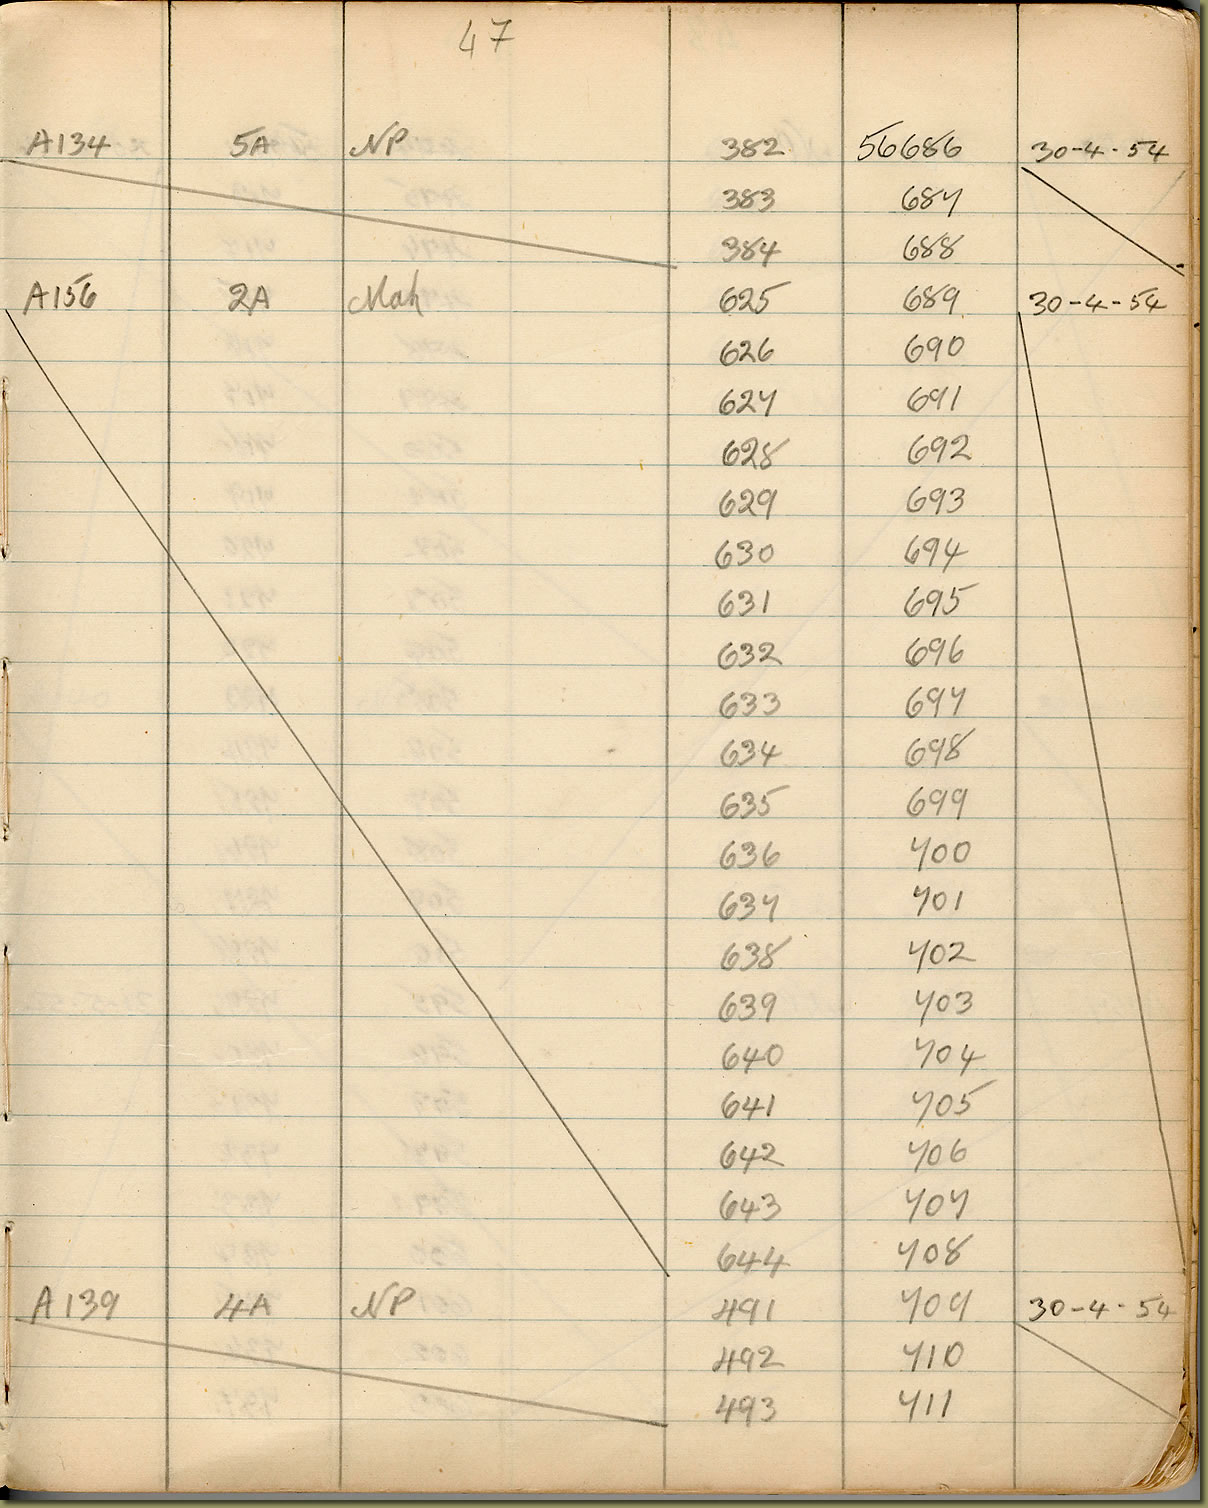 47
A134 5A NP 382 56686 30-4-54
383 687
384 688
A156 2A Mah 625 689 30-4-54
626 690
627 691
628 692
629 693
630 694
631 695
632 696
633 697
634 698
635 699
636 700
637 701
638 702
639 703
640 704
641 705
642 706
643 707
644 708
A139 4A NP 491 709 30-4-54
492 710
493 711